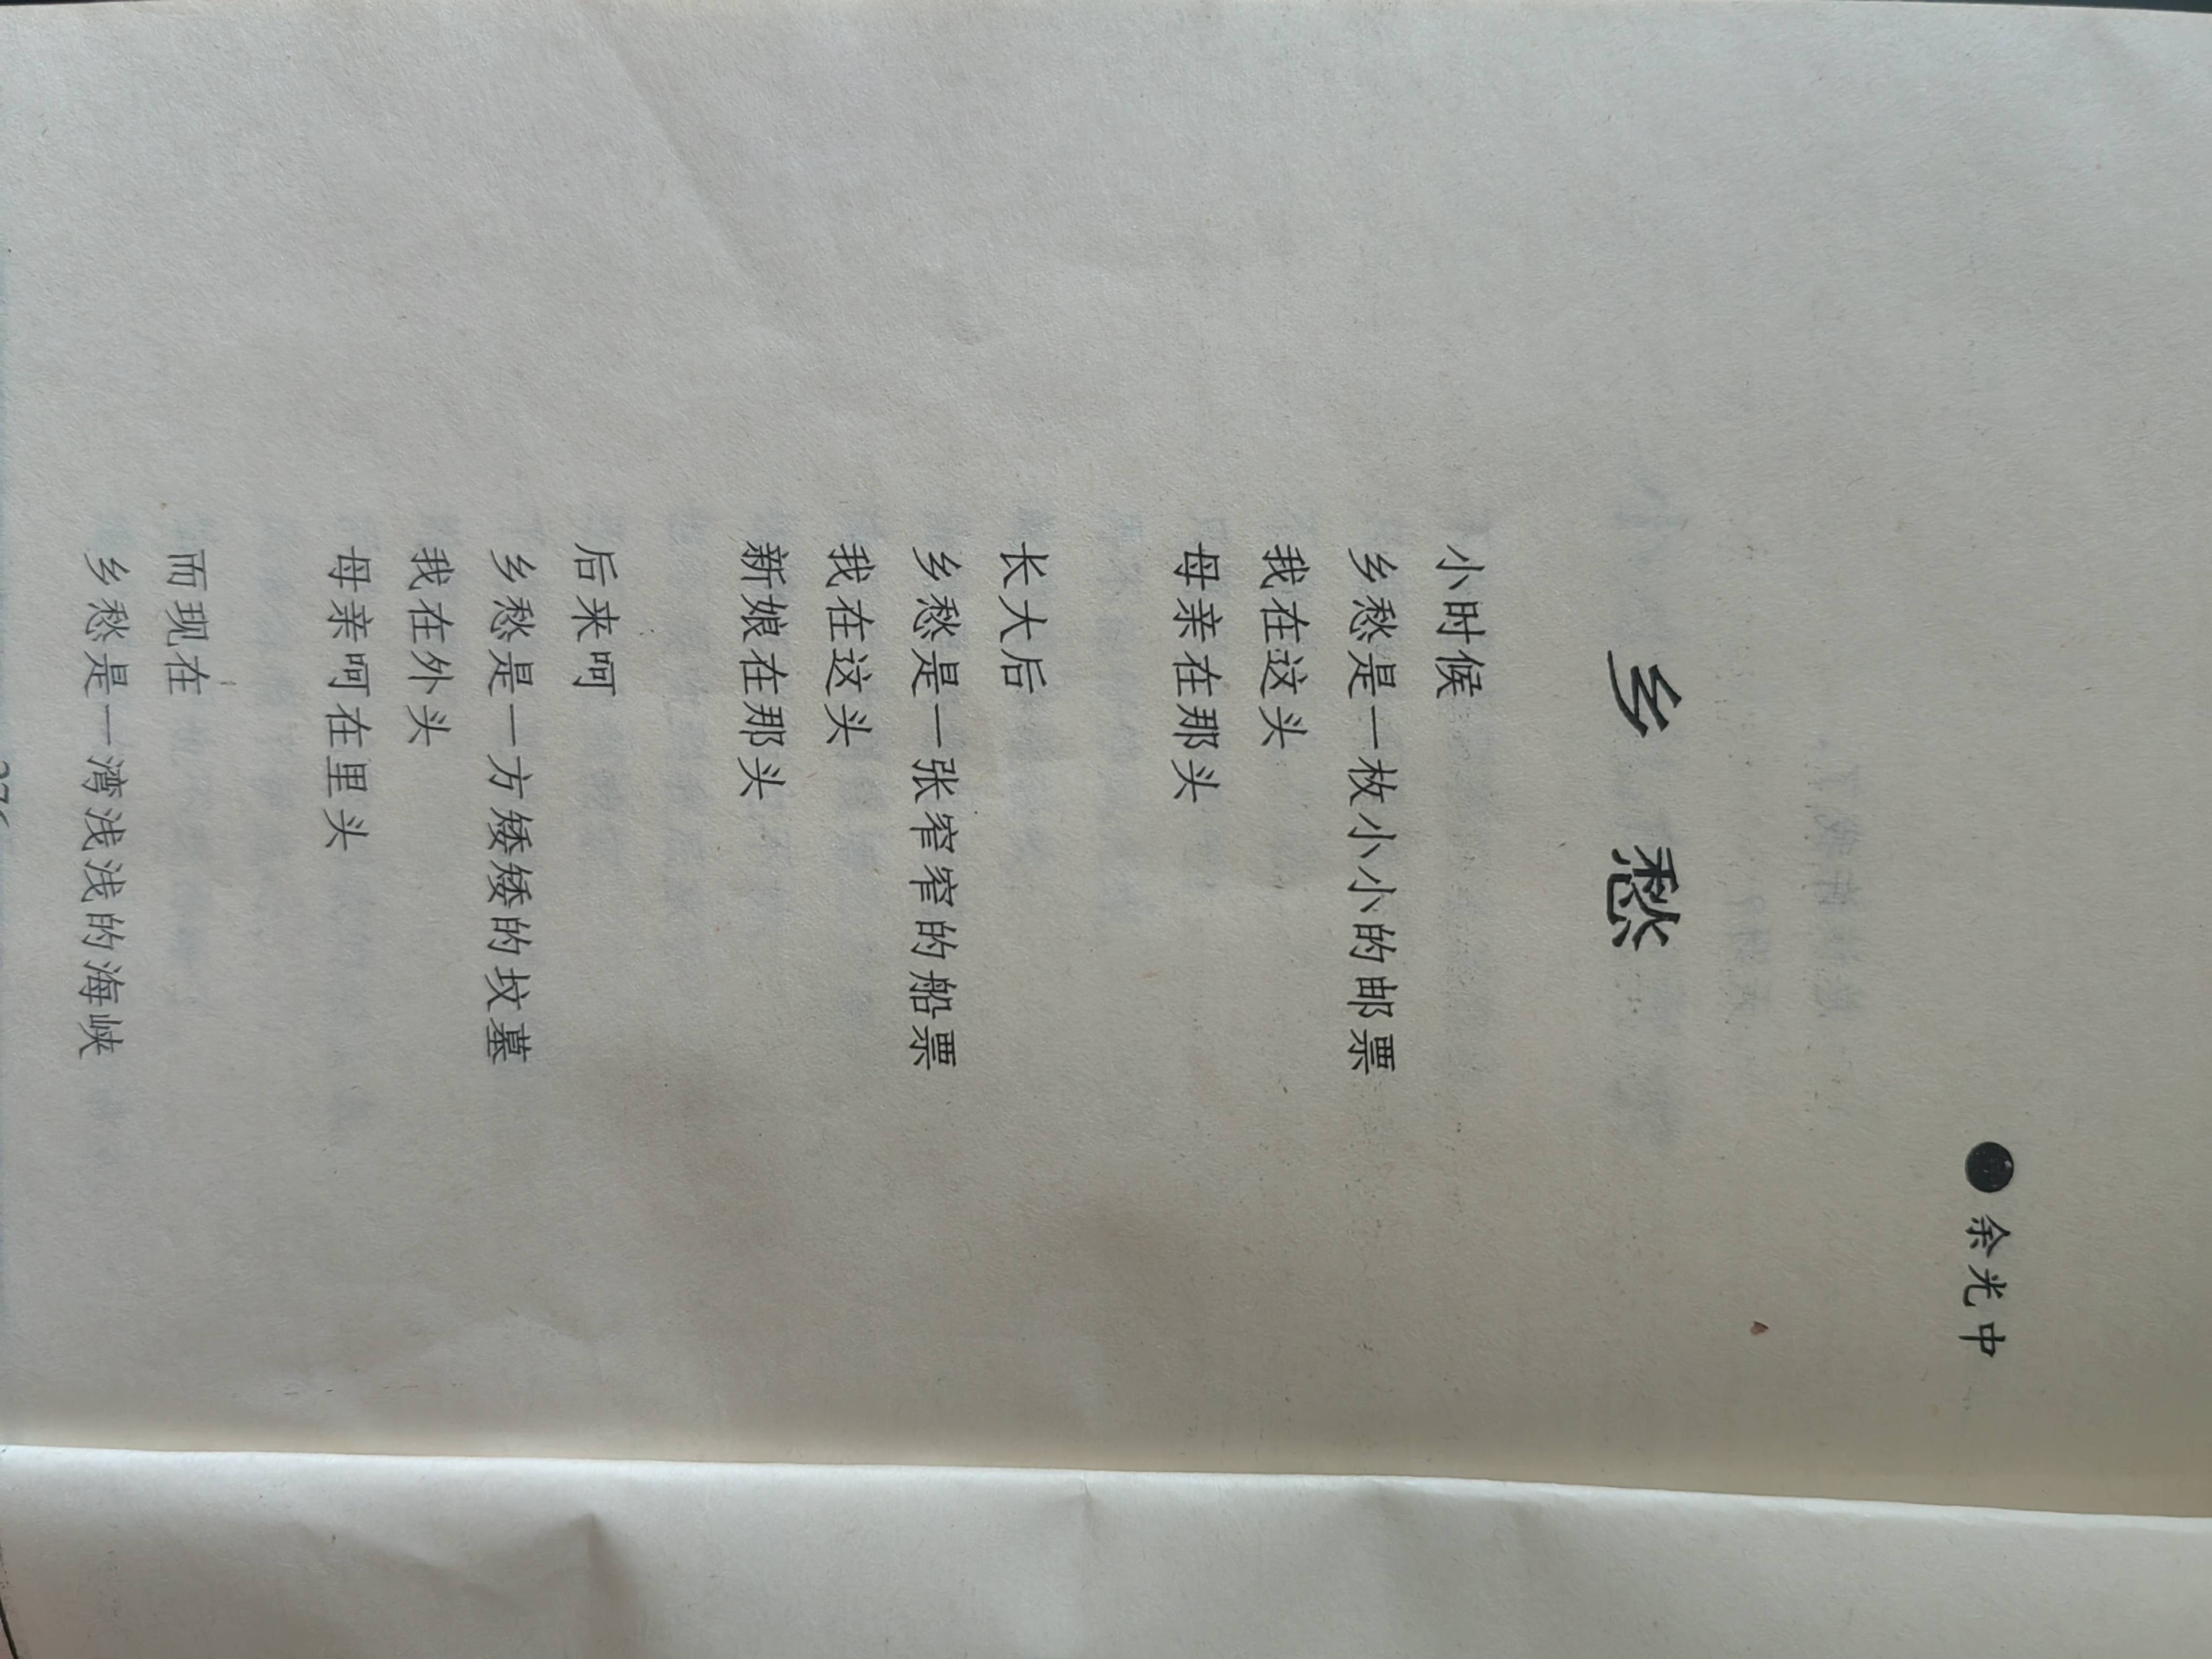 ●余光中
乡愁
小时候
乡愁是一枚小小的邮票
我在这头
母亲在那头
长大后
乡愁是一张窄窄的船票
我在这头
新娘在那头
后来呵
乡愁是一方矮矮的坟墓
我在外头
母亲呵在里头
而现在
乡愁是一湾浅浅的海峡